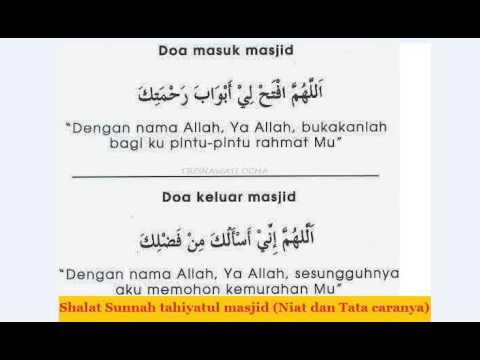 Doa masuk masjid
اَللّٰهُمَّ افْتَحْ لِيْ أَبْوَابَ رَحْمَتِكَ
"Dengan nama Allah, Ya Allah, bukakanlah
bagi ku pintu-pintu rahmat Mu"
TRISNAWATI OCHA
Doa keluar masjid
اَللّٰهُمَّ إِنِّيْ أَسْأَلُكَ مِنْ فَضْلِكَ
"Dengan nama Allah, Ya Allah, sesungguhnya
aku memohon kemurahan Mu"
Shalat Sunnah tahiyatul masjid (Niat dan Tata caranya)